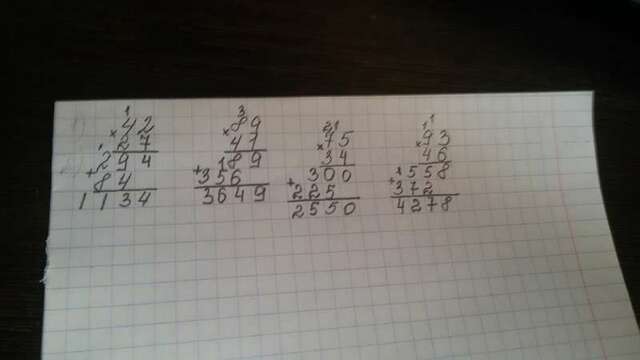 1
42
× 27
1
294
+ 84
1134
3
89
× 41
189
+ 356
3649
21
75
× 34
300
+ 225
2550
11
93
× 46
1558
+ 372
4278